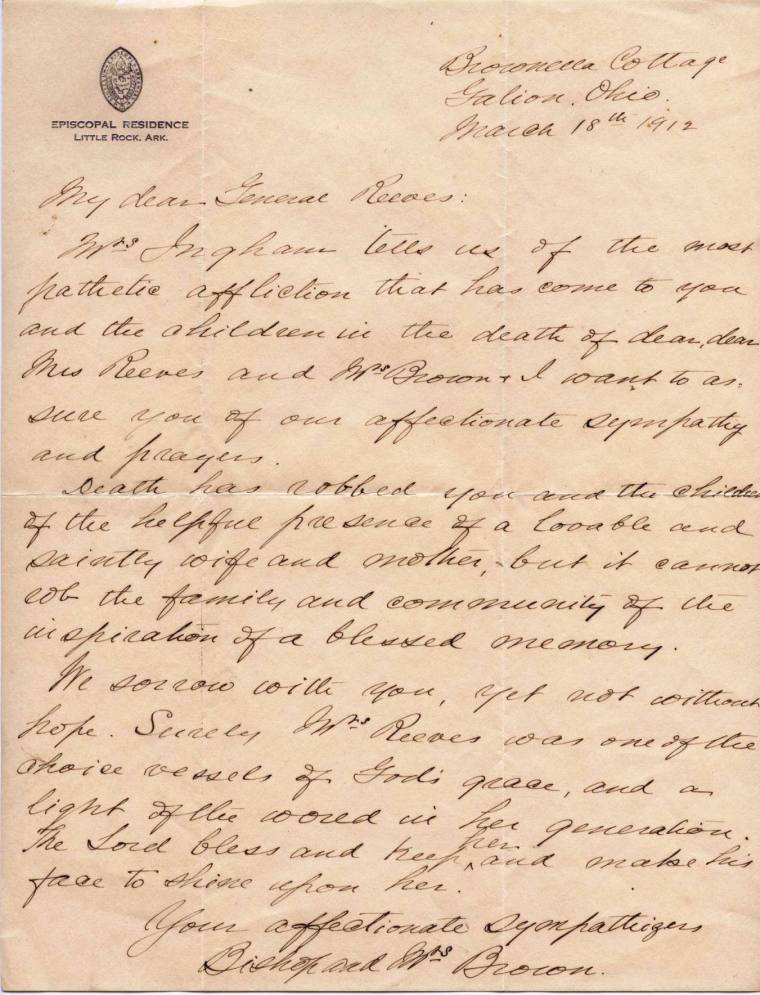 EPISCOPAL RESIDENCE
LITTLE ROCK, ARK.
Brownella Cottage
Galion, Ohio.
March 18th 1912
My dear General Reeves:
Mrs Ingham tells us of the most
pathetic affliction that has come to you
and the children in the death of dear, dear
Mrs Reeves and Mrs Brown & I want to as-
sure you of our affectionate sympathy
and prayers.
Death has robbed you and the children
of the helpful presence of a lovable and
saintly wife and mother, - but it cannot
rob the family and community of the
inspiration of a blessed memory.
We sorrow with you, yet not without
hope. Surely Mrs Reeves was one of the
choice vessels of God's grace, and a
light of the world in her generation.
The Lord bless and keep her, and make his
face to shine upon her.
Your affectionate sympathizers
Bishop and Mrs Brown.